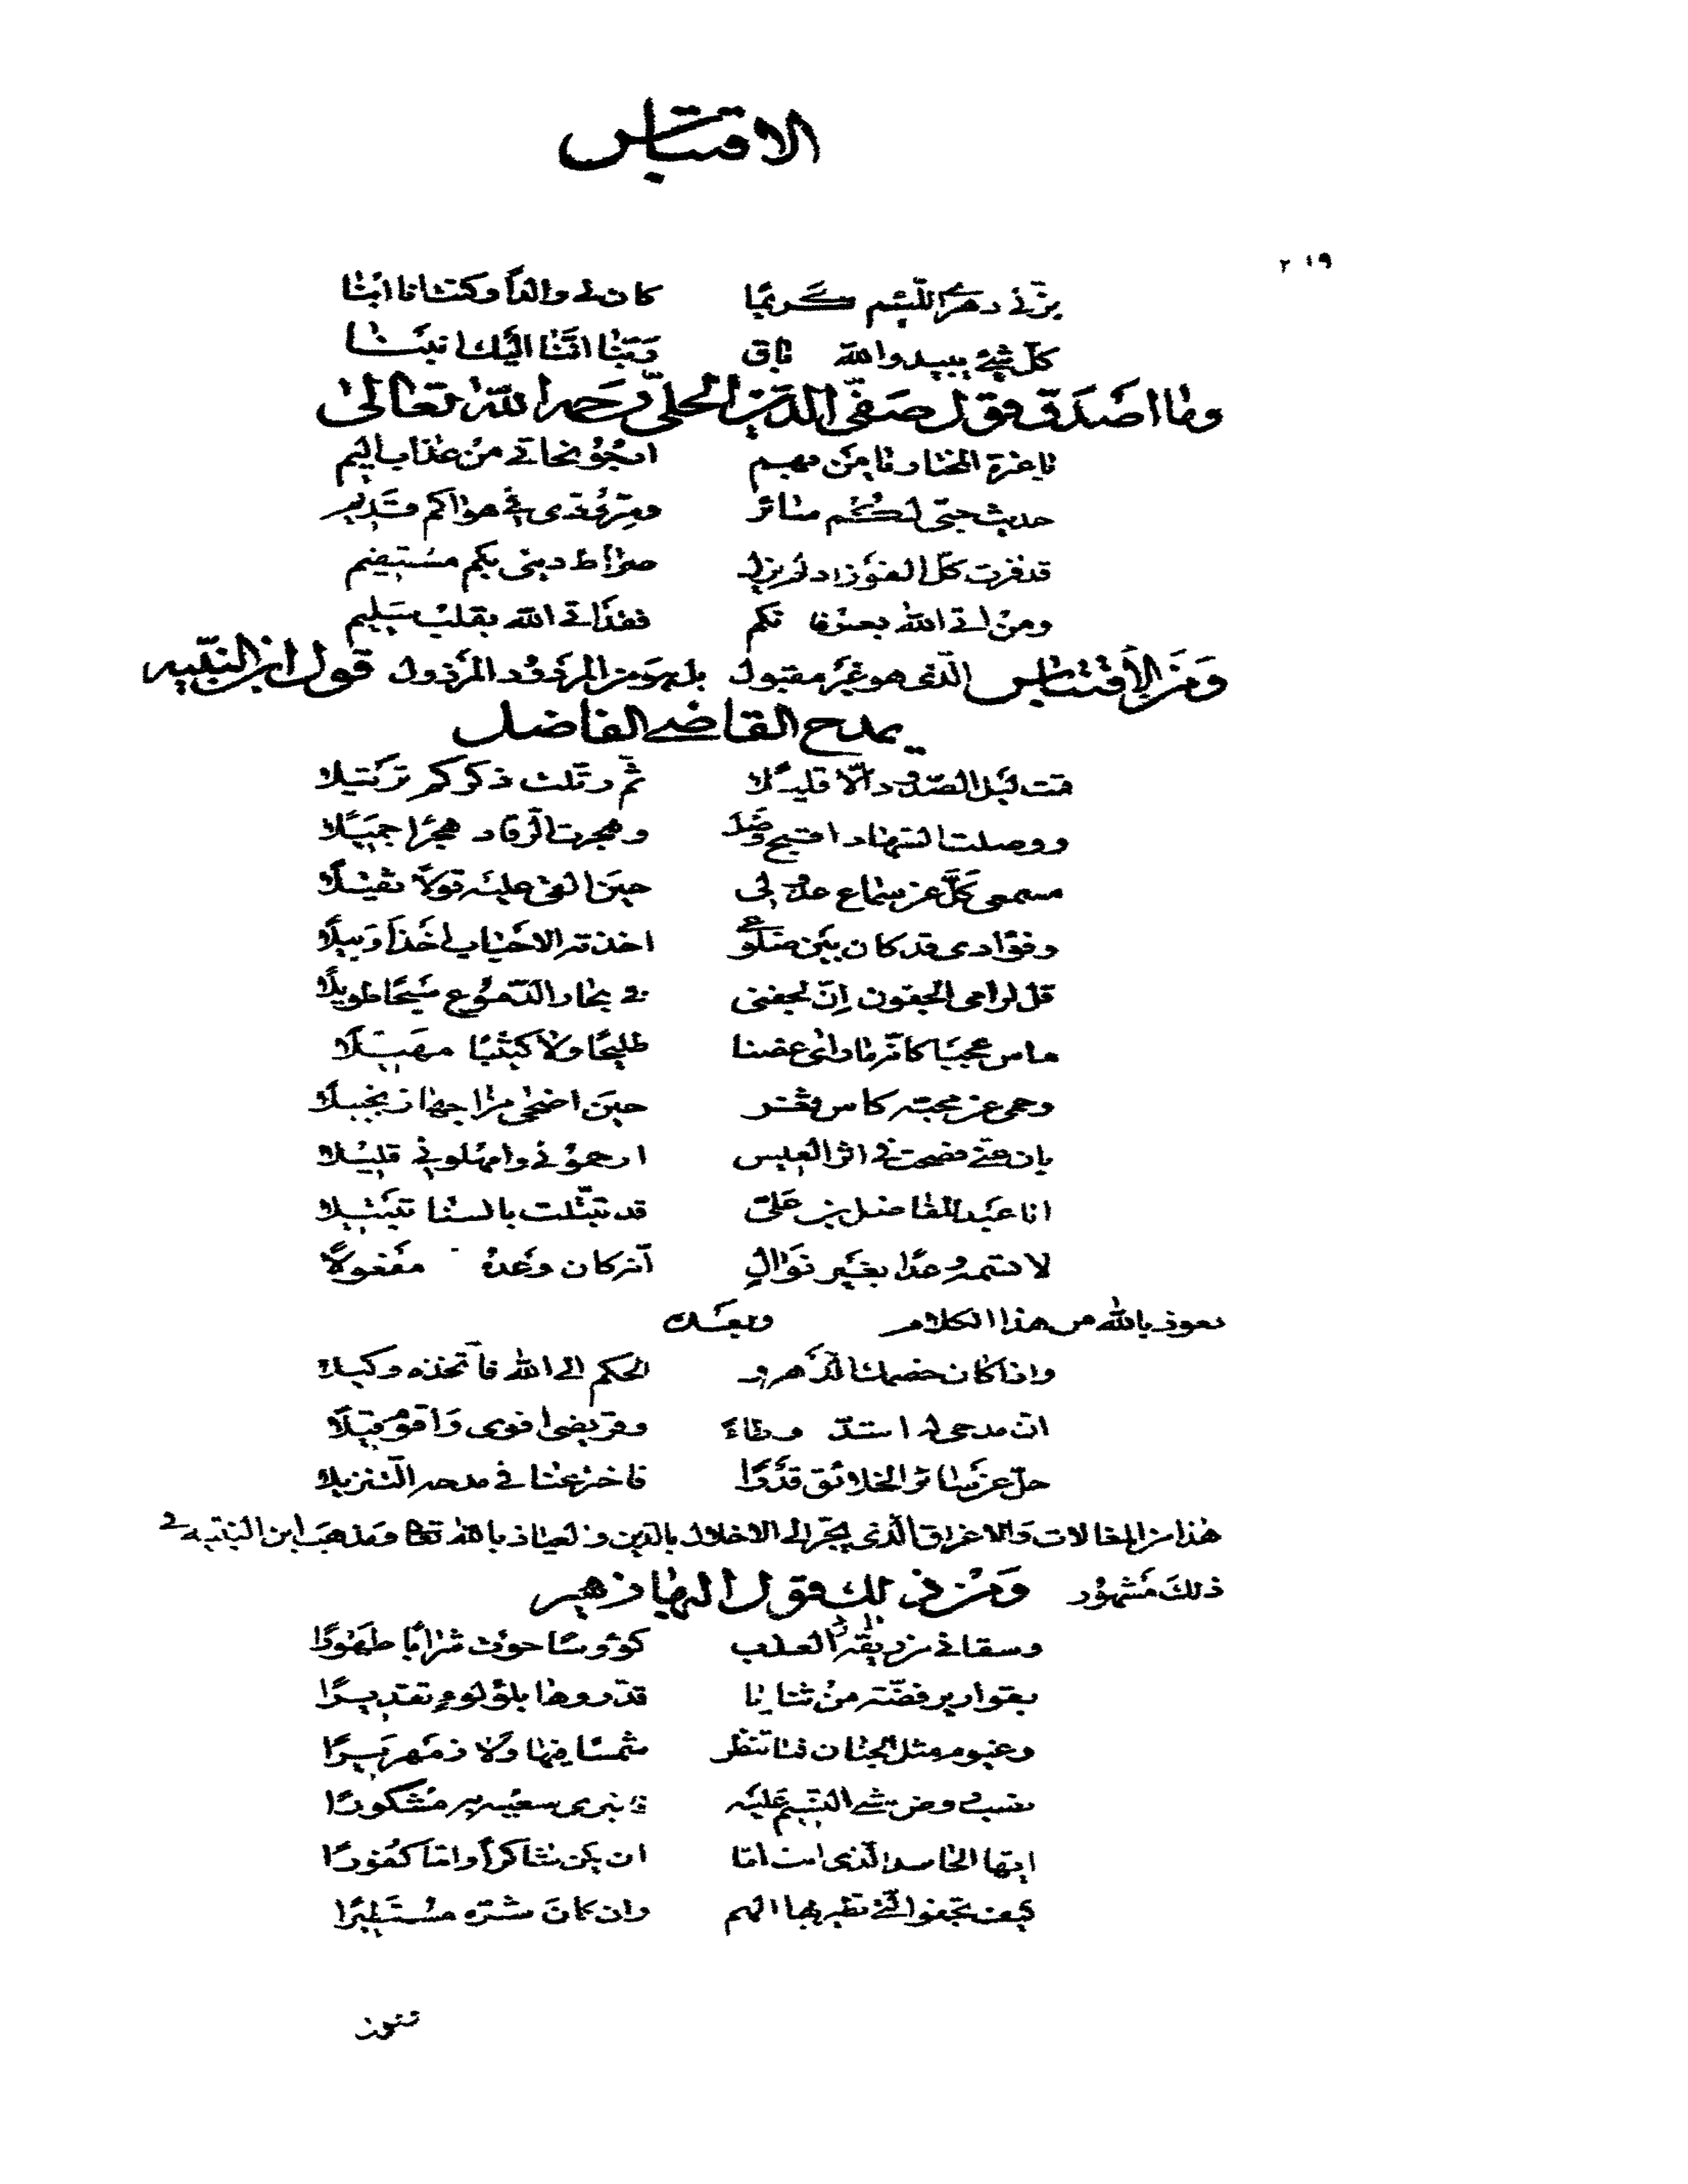 الاقتباس
٢١٩
بزّني دهرى اللّئيم كريمًا كان لي والدًا وكنت انا ابنا
كلّ شئ يبيد والله باق ربّنا انّنا اليك انبنا
وما اصدق قول صفيّ الدّين الحلّي رحمه الله تعالى
يا عترة المختار يا من بهم ارجو نجاتي من عذاب اليم
حديث حبّى لكم سائر وسرّ ودّى في هواكم قديم
قد فزت كلّ الفوز اذ لم يزل صراط دينى بكم مستقيم
ومن اتى الله بعرفانكم فقد اتى الله بقلب سليم
ومن الاقتباس الّذى هو غير مقبول بل هو من المردود المرذول قول ابن النّبيه
يمدح القاضي الفاضل
قمت ليل الصّدود الّا قليلًا ثمّ رتّلت ذكركم ترتيلا
ووصلت السّهاد اقبح وصل وهجرت الرّقاد هجرًا جميلًا
مسمعى كلّ عن سماع عذولى حين القى عليه قولًا ثقيلًا
وفؤادى قد كان بين ضلوعى اخذته الاحباب اخذًا وبيلًا
قل لراقى الجفون إنّ لجفنى في بحار الدّموع سبحًا طويلًا
ماس عجبًا كانّه ما رأى غصنا طليحًا ولا كثيبًا مهيلًا
وحمى عن محبّه كاس ثغر حين اضحى مزاجها زنجبيلًا
بان عنّي فصحت في اثر العيس ارحموني وامهلوني قليلا
انا عبد للفاضل بن علىّ قد تبتّلت بالثنا تبتيلا
لا تسمه وعدًا بغير نوالٍ انّه كان وعده مفعولًا
نعوذ بالله من هذا الكلام وبعده
واذا كان خصمك الدّهر و الحكم الى الله فاتّخذه وكيلا
انّ مدحى له اشدّ وطاءً وقريضى اقوى واقوم قيلًا
جلّ عن سائر الخلائق قدرًا فاخترعنا في مدحه التّنزيلا
هذا من المغالات والاغراق الّذى يجرّ الى الاخلال بالدّين والعياذ بالله تعا ومذهب ابن النّبيه في
ذلك مشهور ومن ذلك قول البها زهير
وسقاني من ريقه البارد العذب كؤوسًا حوت شرابًا طهورًا
بقوارير فضّة من ثنايا قدّروها بلؤلوءٍ تقديرًا
وعيوم مثل الجنان فما تنظر شمسًا فيها ولا زمهريرًا
ايّها الحاسد الّذى امّا ان يكن شاكرًا وامّا كفورًا
كيف تجفو الّتي نظير بها الهم وان كان شرّه مستطيرًا